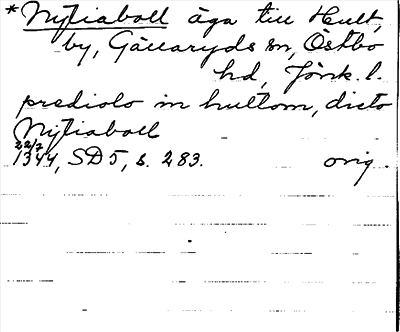 *Nytiaboll äga till Hult,
by, Gällaryds sn, Östbo
hd, Jönk. l.
prediolo in hultom, dicto
Nytiaboll
22/7
1344, SD 5, s. 283. orig.